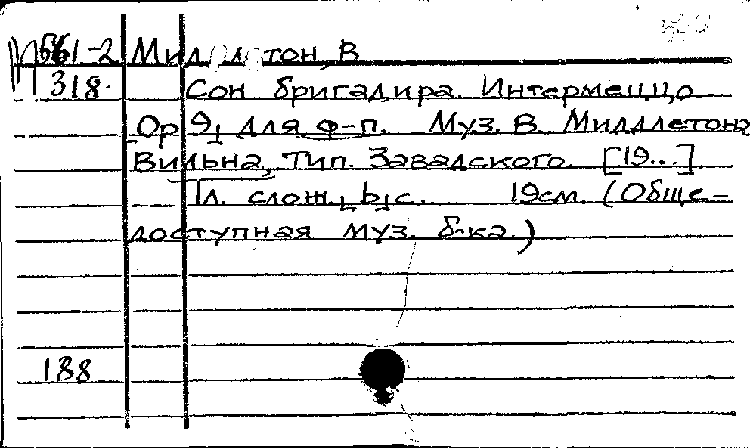 М561-2 Миддлетон, В
318. Сон бригадира. Интермеццо
Ор 9, для ф-п. Муз. В. Миддлетона
Вильна, тип. Завадского. [19...]
1л. слож., b, с. 19см. (Обще-
доступная муз. б-ка.)
188